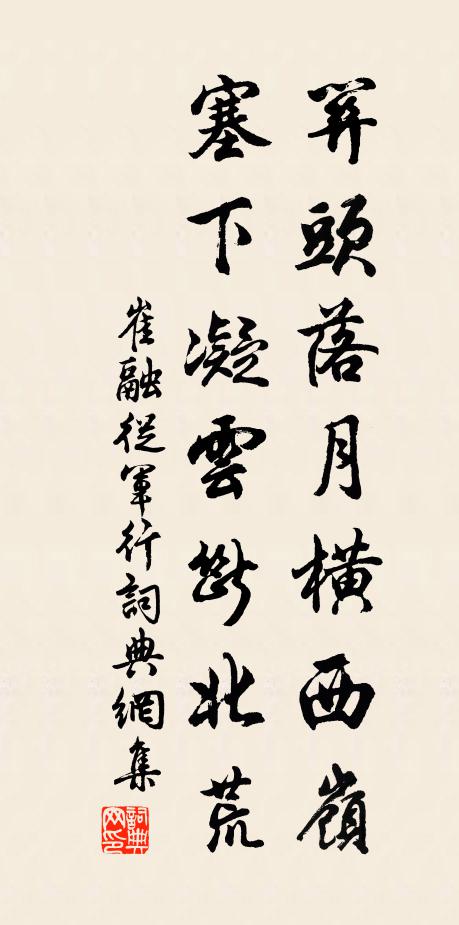 關頭落月橫西嶺
塞下凝雲斷北荒
崔融從軍行詞典網集
詞典
网印